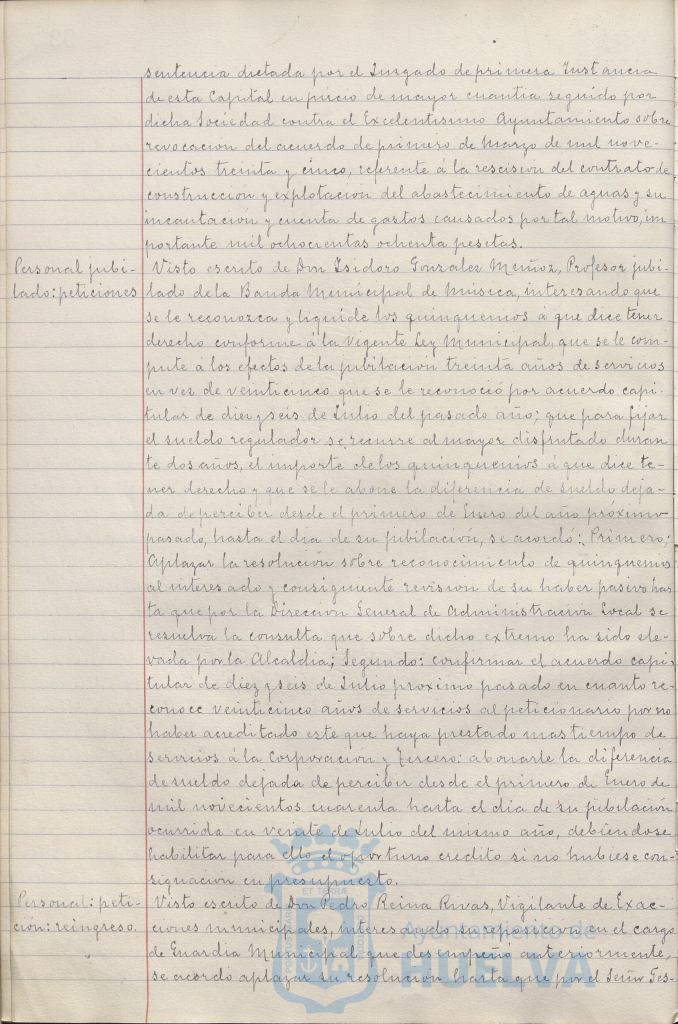 sentencia dictada por el Juzgado de primera Instancia
de esta Capital en juicio de mayor cuantia seguido por
dicha Sociedad contra el Excelentisimo Ayuntamiento sobre
revocacion del acuerdo de primero de Marzo de mil nove-
cientos treinta y cinco, referente á la rescision del contrato de
construccion y explotacion del abastecimiento de aguas y su
incautacion y cuenta de gastos causados por tal motivo, im
portante mil ochocientas ochenta pesetas.
Personal jubi-
lado: peticiones
Visto escrito de Don Isidoro Gonzalez Muñoz, Profesor jubi-
lado de la Banda Municipal de Música, interesando que
se le reconozca y liquide los quinquenios á que dice tener
derecho conforme á la vigente Ley Municipal, que se le com-
pute á los efectos de la jubilacion treinta años de servicios
en vez de veinticinco que se le reconoció por acuerdo capi-
tular de diez y seis de Julio del pasado año; que para fijar
el sueldo regulador se recurre al mayor disfrutado duran
te dos años, el importe de los quinquenios á que dice te-
ner derecho y que se le abone la diferencia de sueldo deja-
da de percibir desde el primero de Enero del año próximo
pasado, hasta el dia de su jubilación, se acordó: Primero;
Aplazar la resolucion sobre reconocimiento de quinquenios
al interesado y consiguiente revision de su haber pasivo has
ta que por la Direccion General de Administracion Local se
resuelva la consulta que sobre dicho extremo ha sido ele-
vada por la Alcaldia; Segundo: confirmar el acuerdo capi-
tular de diez y seis de Julio proximo pasado en cuanto re-
conoce veinticinco años de servicios al peticionario por no
haber acreditado este que haya prestado mas tiempo de
servicios á la Corporacion y Tercero: abonarle la diferencia
de sueldo dejada de percibir desde el primero de Enero de
mil novecientos cuarenta hasta el dia de su jubilación
ocurrida en veinte de Julio del mismo año, debiendose
habilitar para ello el oportuno credito si no hubiese con-
signacion en presupuesto.
Personal: peti-
ción: reingreso.
Visto escrito de Don Pedro Reina Rivas, Vigilante de Exac-
ciones municipales, interesando su reposicion en el cargo
de Guardia Municipal que desempeñó anteriormente,
se acordó aplazar su resolucion hasta que por el Señor Tes-
Ayuntamiento de
HUELVA